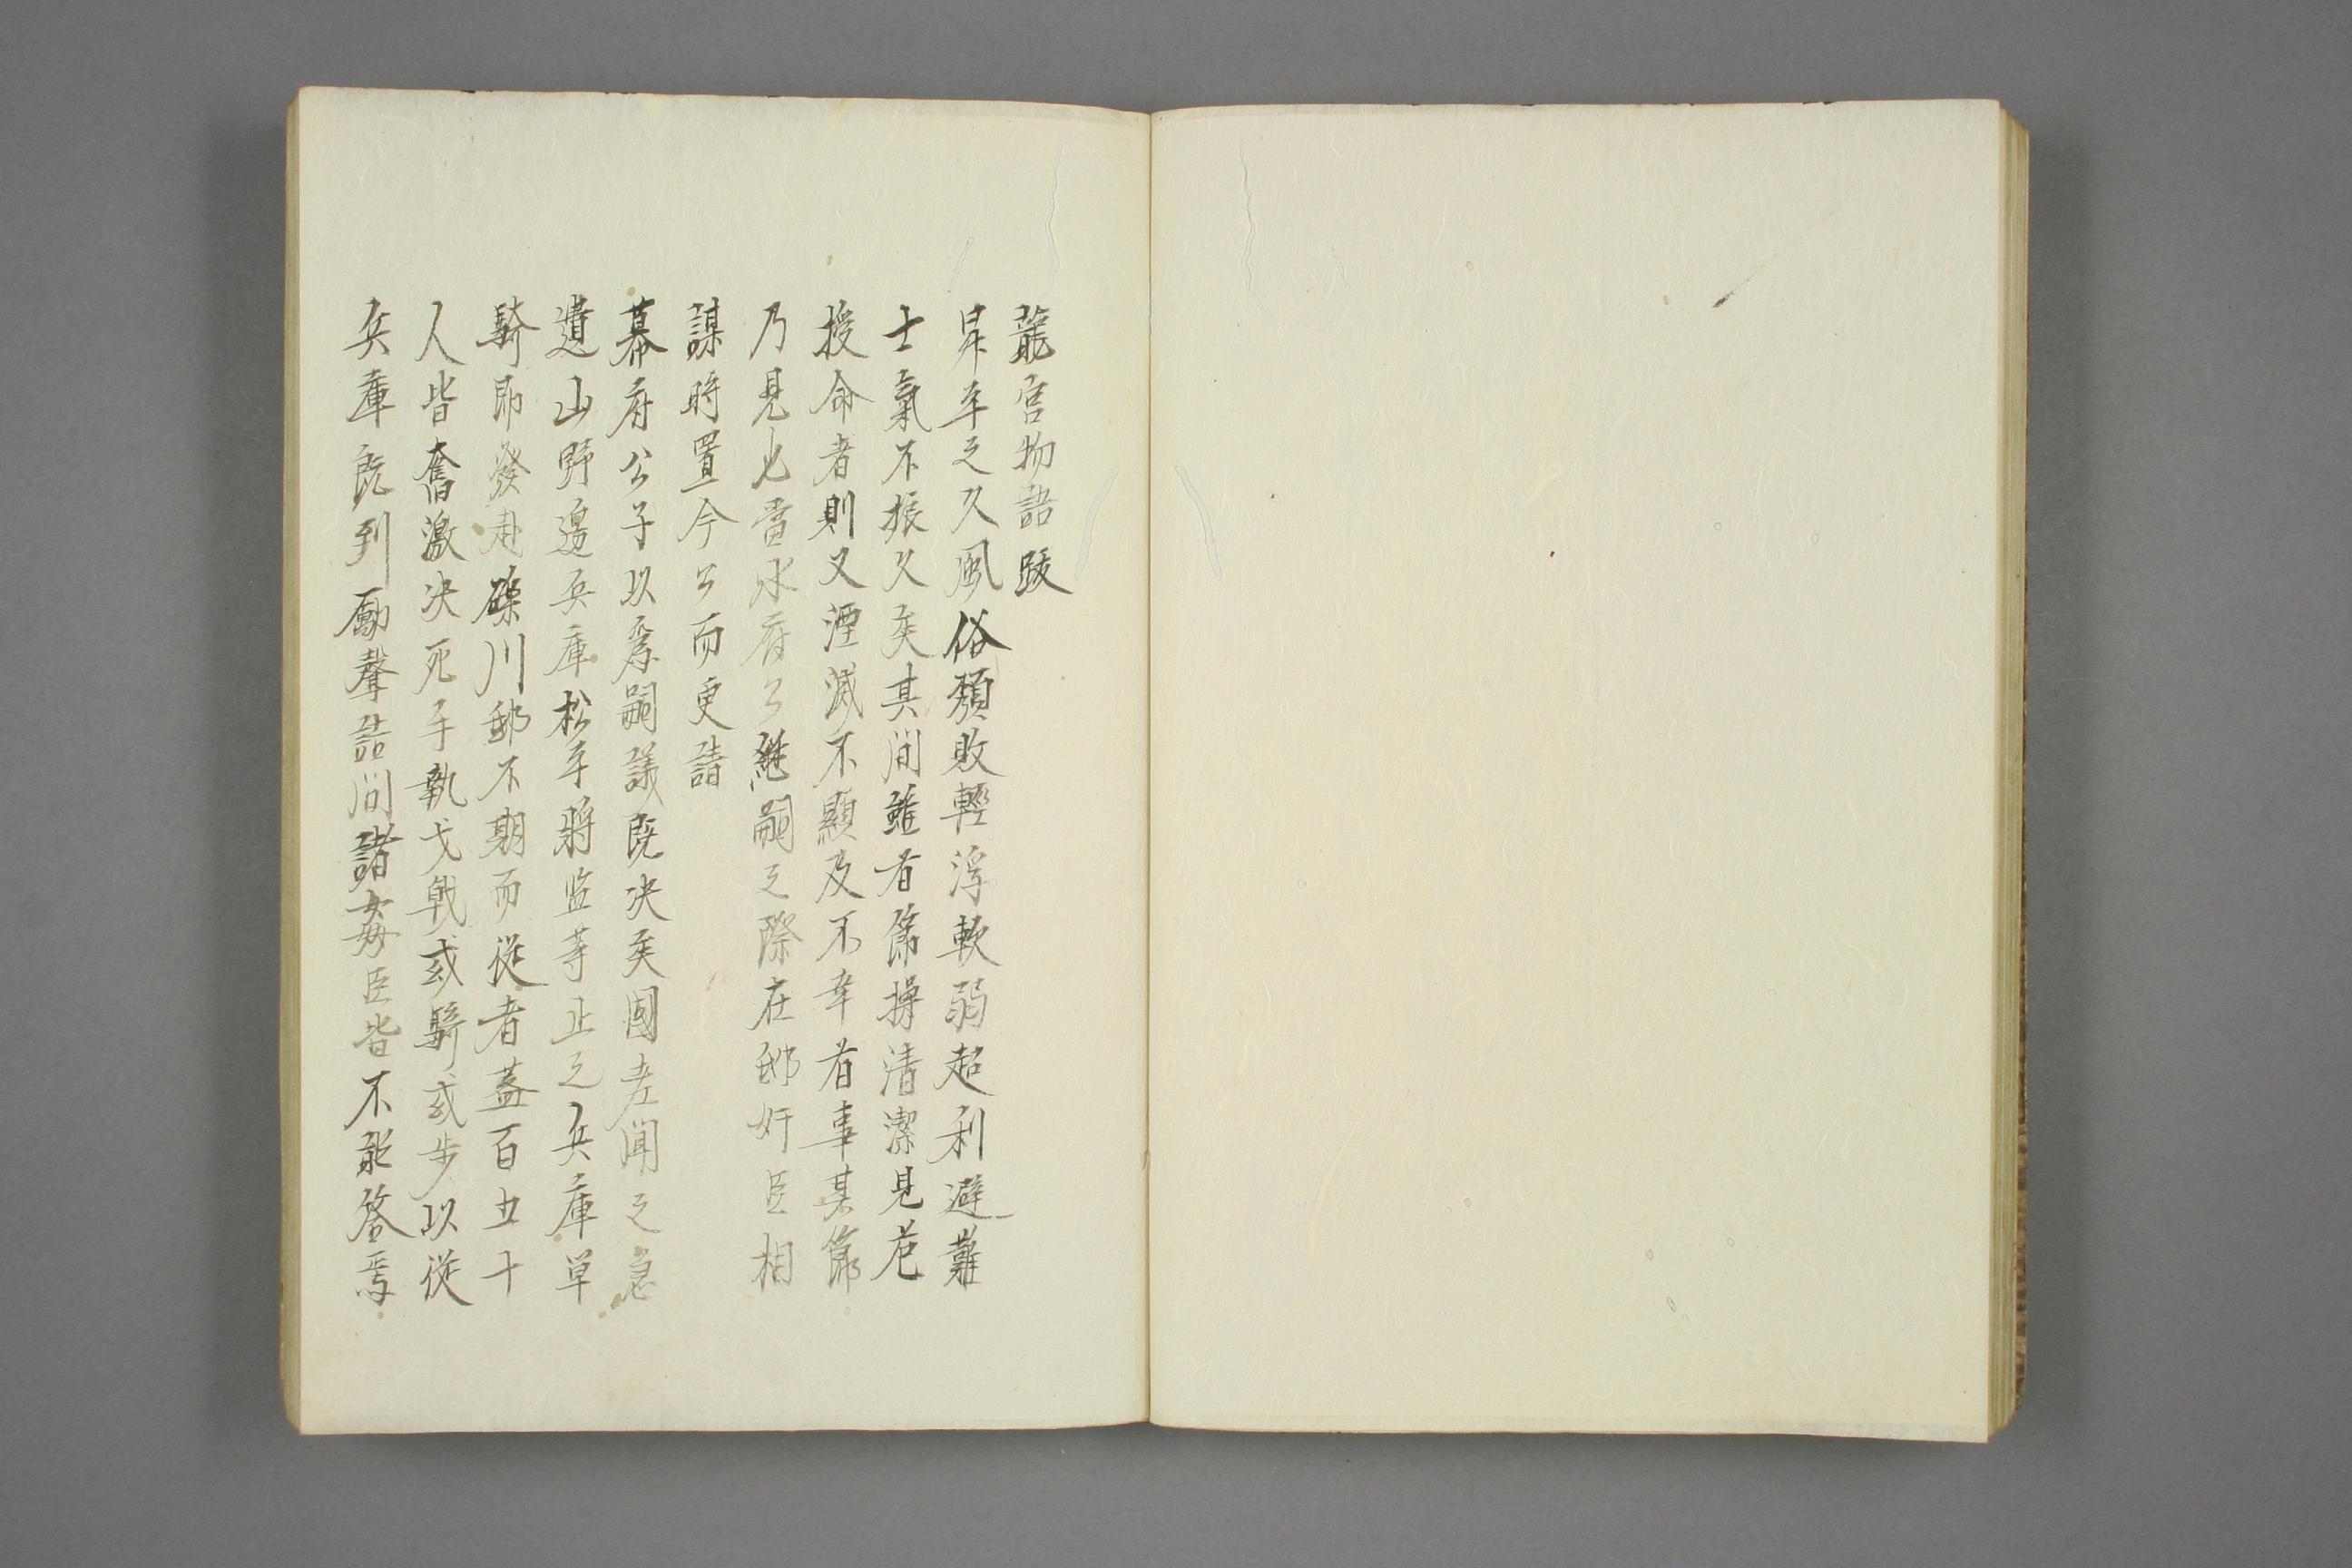 龍宮物語跋
昇平之久風俗頽敗輕浮軟弱趍利避難
士氣不振久矣其間雖有節操清潔見危
授命者則又湮滅不顯及不幸有事某節
乃見也當水府公継嗣之際在邸奸臣相
謀將置今公而更請
幕府公子以為嗣議既决矣國老聞之急
遣山野邉兵庫松平將监等止之兵庫单
騎即發赴礫川邸不期而從者蓋百五十
人皆奮激决死手執戈戟或騎或步以從
兵庫既到勵聲詰问諸姦臣皆不能答焉